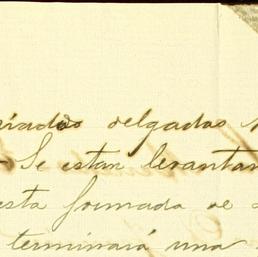 delgadas
Se estan levantan
esta formada de
terminará una